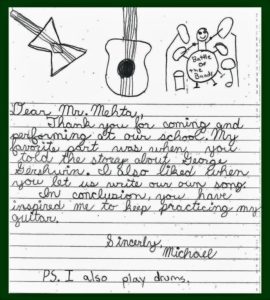 Battle
Of
the
Bands
Dear Mr. Mehta,
Thank you for coming and
performing at our school. My
favorite part was when you
told the story about George
Gershwin. I also liked when
you let us write our own song.
In conclusion, you have
inspired me to keep practicing my
guitar.
Sincerly,
Michael
P.S. I also play drums.